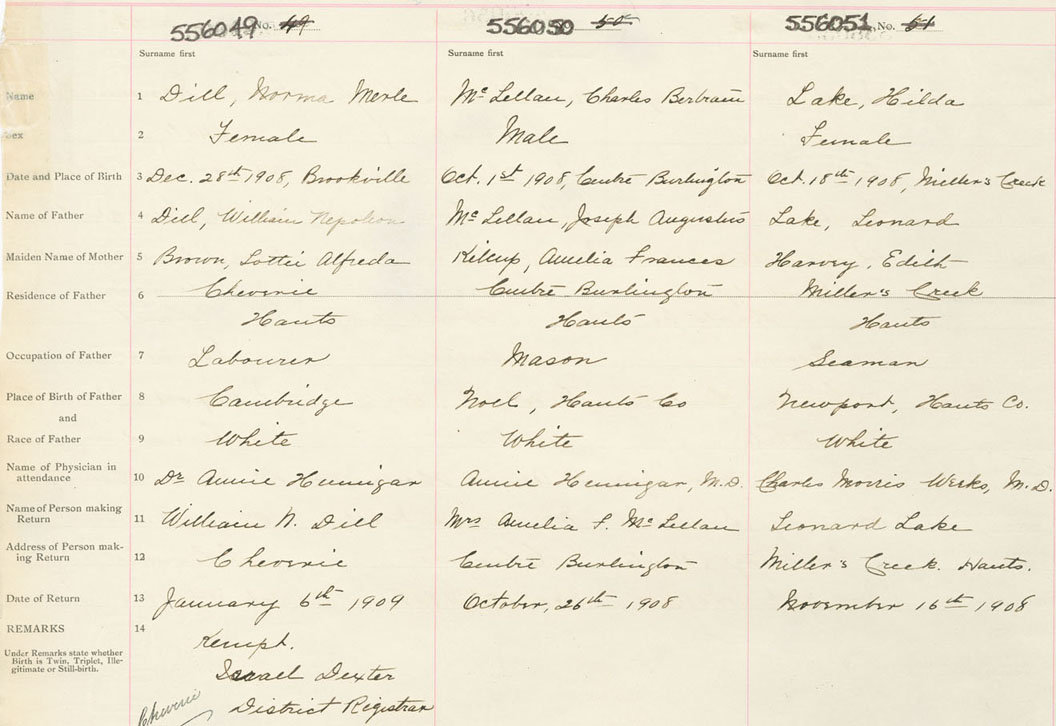 556049 No. 49 556050 50 556051 No. 51
Surname first Surname first Surname first
Name 1 Dill, Norma Merle Mc Lellan, Charles Bertram Lake, Hilda
Sex 2 Female Male Female
Date and Place of Birth 3 Dec. 28th 1908, Brookville Oct. 1st 1908, Centre Burlington Oct. 18th 1908, Miller's Creek
Name of Father 4 Dill, William Nepoleon Mc Lellan, Joseph Augustus Lake, Leonard
Maiden Name of Mother 5 Brown, Lottie Alfreda Killcup, Amelia Frances Harvey, Edith
Residence of Father 6 Cheverie Centre Burlington Miller's Creek
Hants Hants Hants
Occupation of Father 7 Labourer Mason Seaman
Place of Birth of Father 8 Cambridge Noel, Hants Co Newport, Hants Co.
and
Race of Father 9 White White White
Name of Physician in
attendance 10 Dr Annie Hennigar Annie Hennigar, M.D. Charles Morris Weeks, M.D.
Name of Person making
Return 11 William N. Dill Mrs Amelia F. Mc Lellan Leonard Lake
Address of Person mak-
ing Return 12 Cheverie Centre Burlington Miller's Creek. Hants.
Date of Return 13 January 6th 1909 October, 26th 1908 November 16th 1908
REMARKS 14
Kempt.
Under Remarks state whether
Birth is Twin, Triplet, Ille-
gitimate or Still-birth.
Israel Dexter
District Registrar
Cheverie